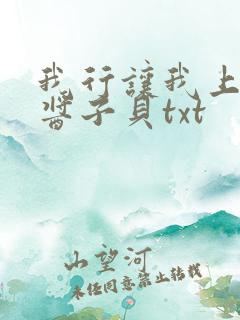 我行讓我上
醬子貝txt
山望河
未经同意禁止转载